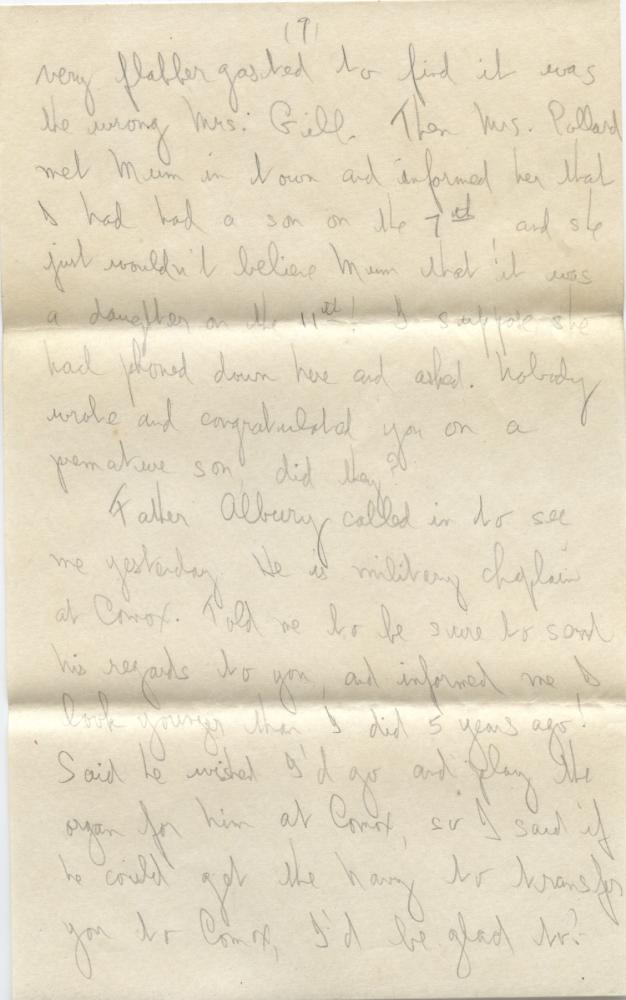 (9)
very flabbergasted to find it was
the wrong Mrs. Gill. Then Mrs. Pollard
met Mum in town and informed her that
I had had a son on the 7th and she
just wouldn't believe Mum that it was
a daughter on the 11th! I suppose she
had phoned down here and asked. Nobody
wrote and congratulated you on a
premature son, did they?
Father Albury called in to see
me yesterday. He is military chaplain
at Comox. Told me to be sure to send
his regards to you, and informed me I
look younger than I did 5 years ago!
Said he wished I'd go and play the
organ for him at Comox, so I said if
he could get the Navy to transfer
you to Comox, I'd be glad to!